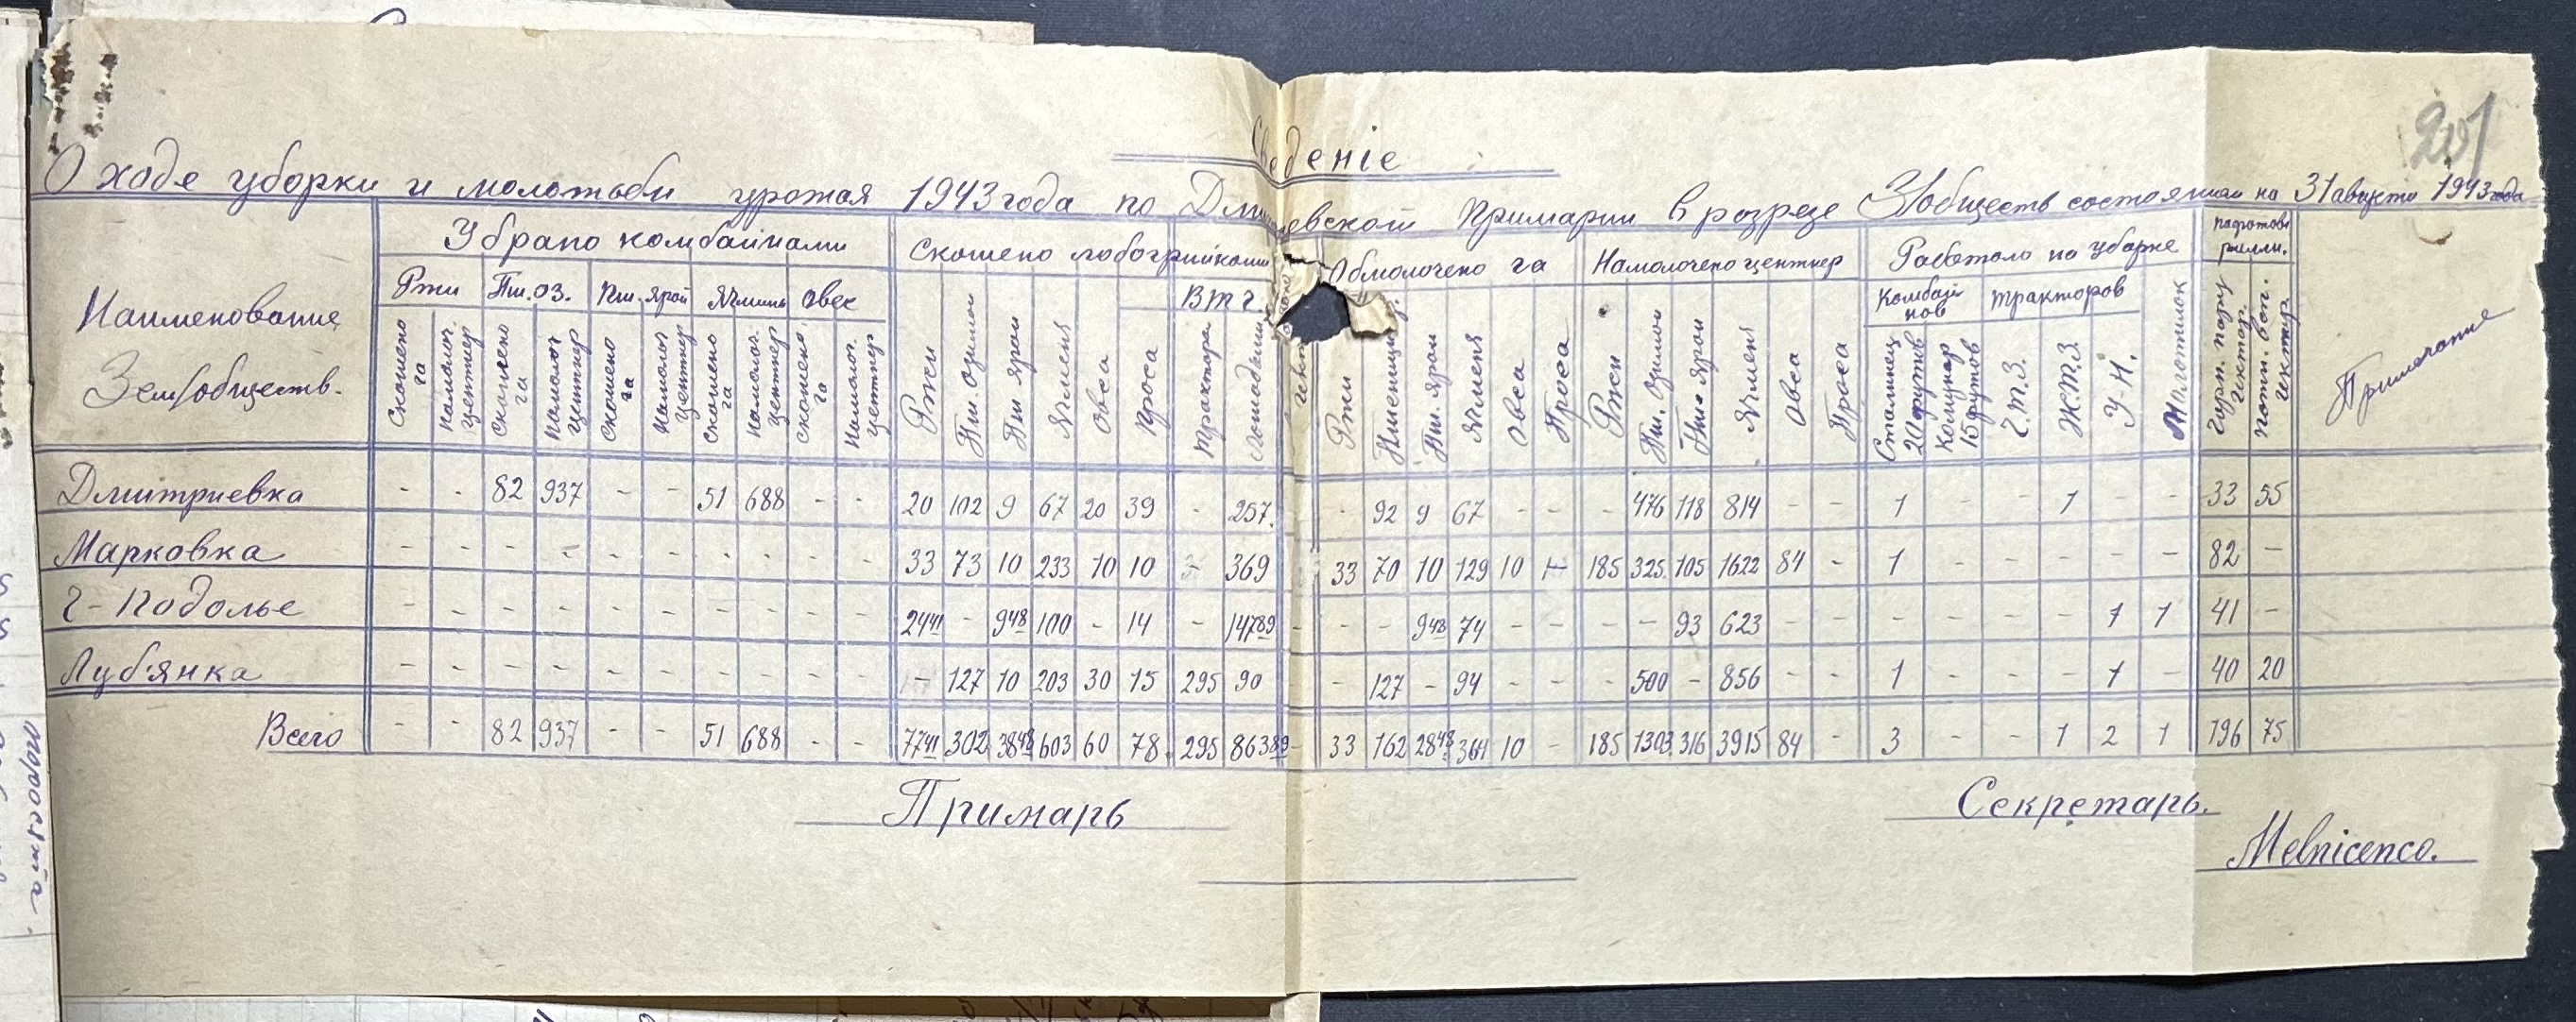 201
Сведеніе
О ходе уборки и молотьби урожая 1943 года по Дми евской Примарии в розрезе З/обществ состоянием на 31 августа 1943 года
Наименование Зем/обществ.
Убрано комбайнами
Скошено лобогрийками
Обмолочено га
Намолочено центнер
Работало на уборке
Примечание
Ржи Пш. оз. Пш. ярой Ячмень Овес
В т. ч.
Комбайнов тракторов Молотилок
Скошено га Намолоч. центнер Скошено га Намолоч центнер Скошено га Намолоч центнер Скошено га Намолоч. центнер Скошено га Намолоч. центнер
Ржи Пш. озимой Пш ярой Ячменя Овса Проса Трактора
Ржи Пшеницы Пш. ярой Ячменя Овса Проса
Ржи Пш. озимой Пш. ярой Ячменя Овса Проса
Сталинец 20 футов Комунар 15 футов Х.Т.З. У-Н.
Дмитриевка - - 82 937 - - 51 688 - - 20 102 9 67 20 39 - 257. - 92 9 67 - - - 476 118 814 - - 1 - - 1 - - 33 55
Марковка - - - - - - - - - - 33 73 10 233 10 10 - 369 33 70 10 129 10 - 185 325 105 1622 84 - 1 - - - - - 82 -
Г-Подолье - - - - - - - - - - 24 41 - 9 48 100 - 14 - 147 89 - - - 9 48 74 - - - - 93 623 - - - - - - 1 1 41 -
Луб'янка - - - - - - - - - - - 127 10 203 30 15 295 90 - 127 - 94 - - - 500 - 856 - - 1 - - - 1 - 40 20
Всего - - 82 937 - - 51 688 - - 77 41 302 38 48 603 60 78. 295 863 89 - 33 162 28 48 364 10 - 185 1303 316 3915 84 - 3 - - 1 2 1 196 75
Примарь
Секретарь.
Melnicenco.